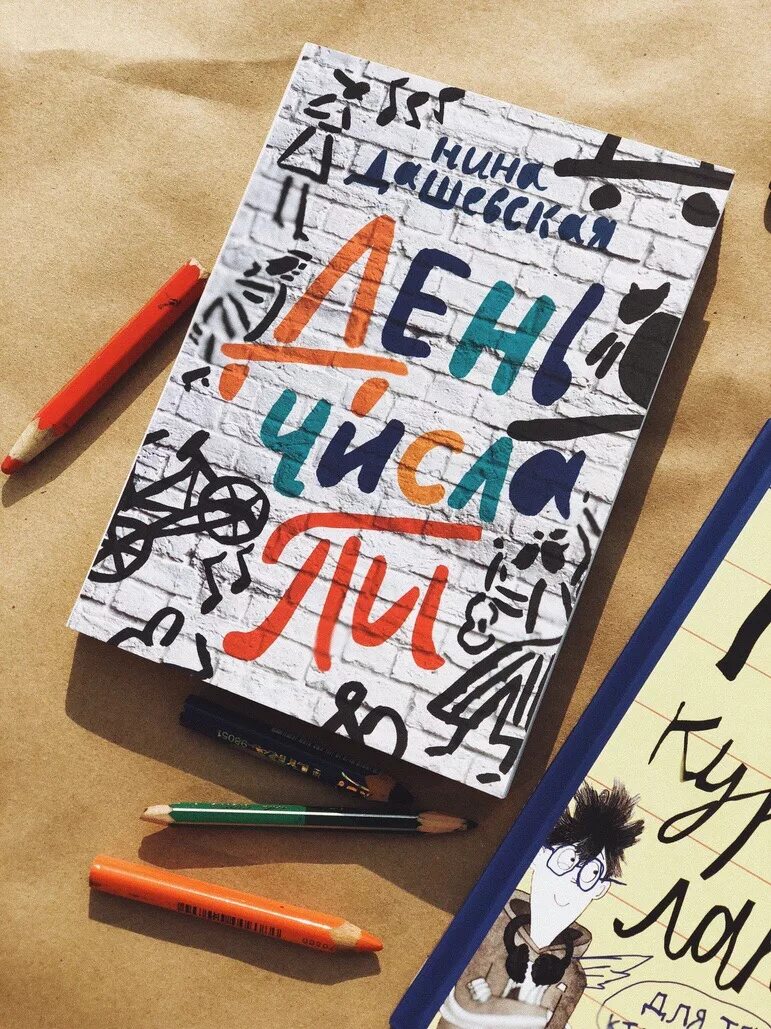 нина
Дашевская
День
числа
Пи
98051
кур
лап
для т
кт